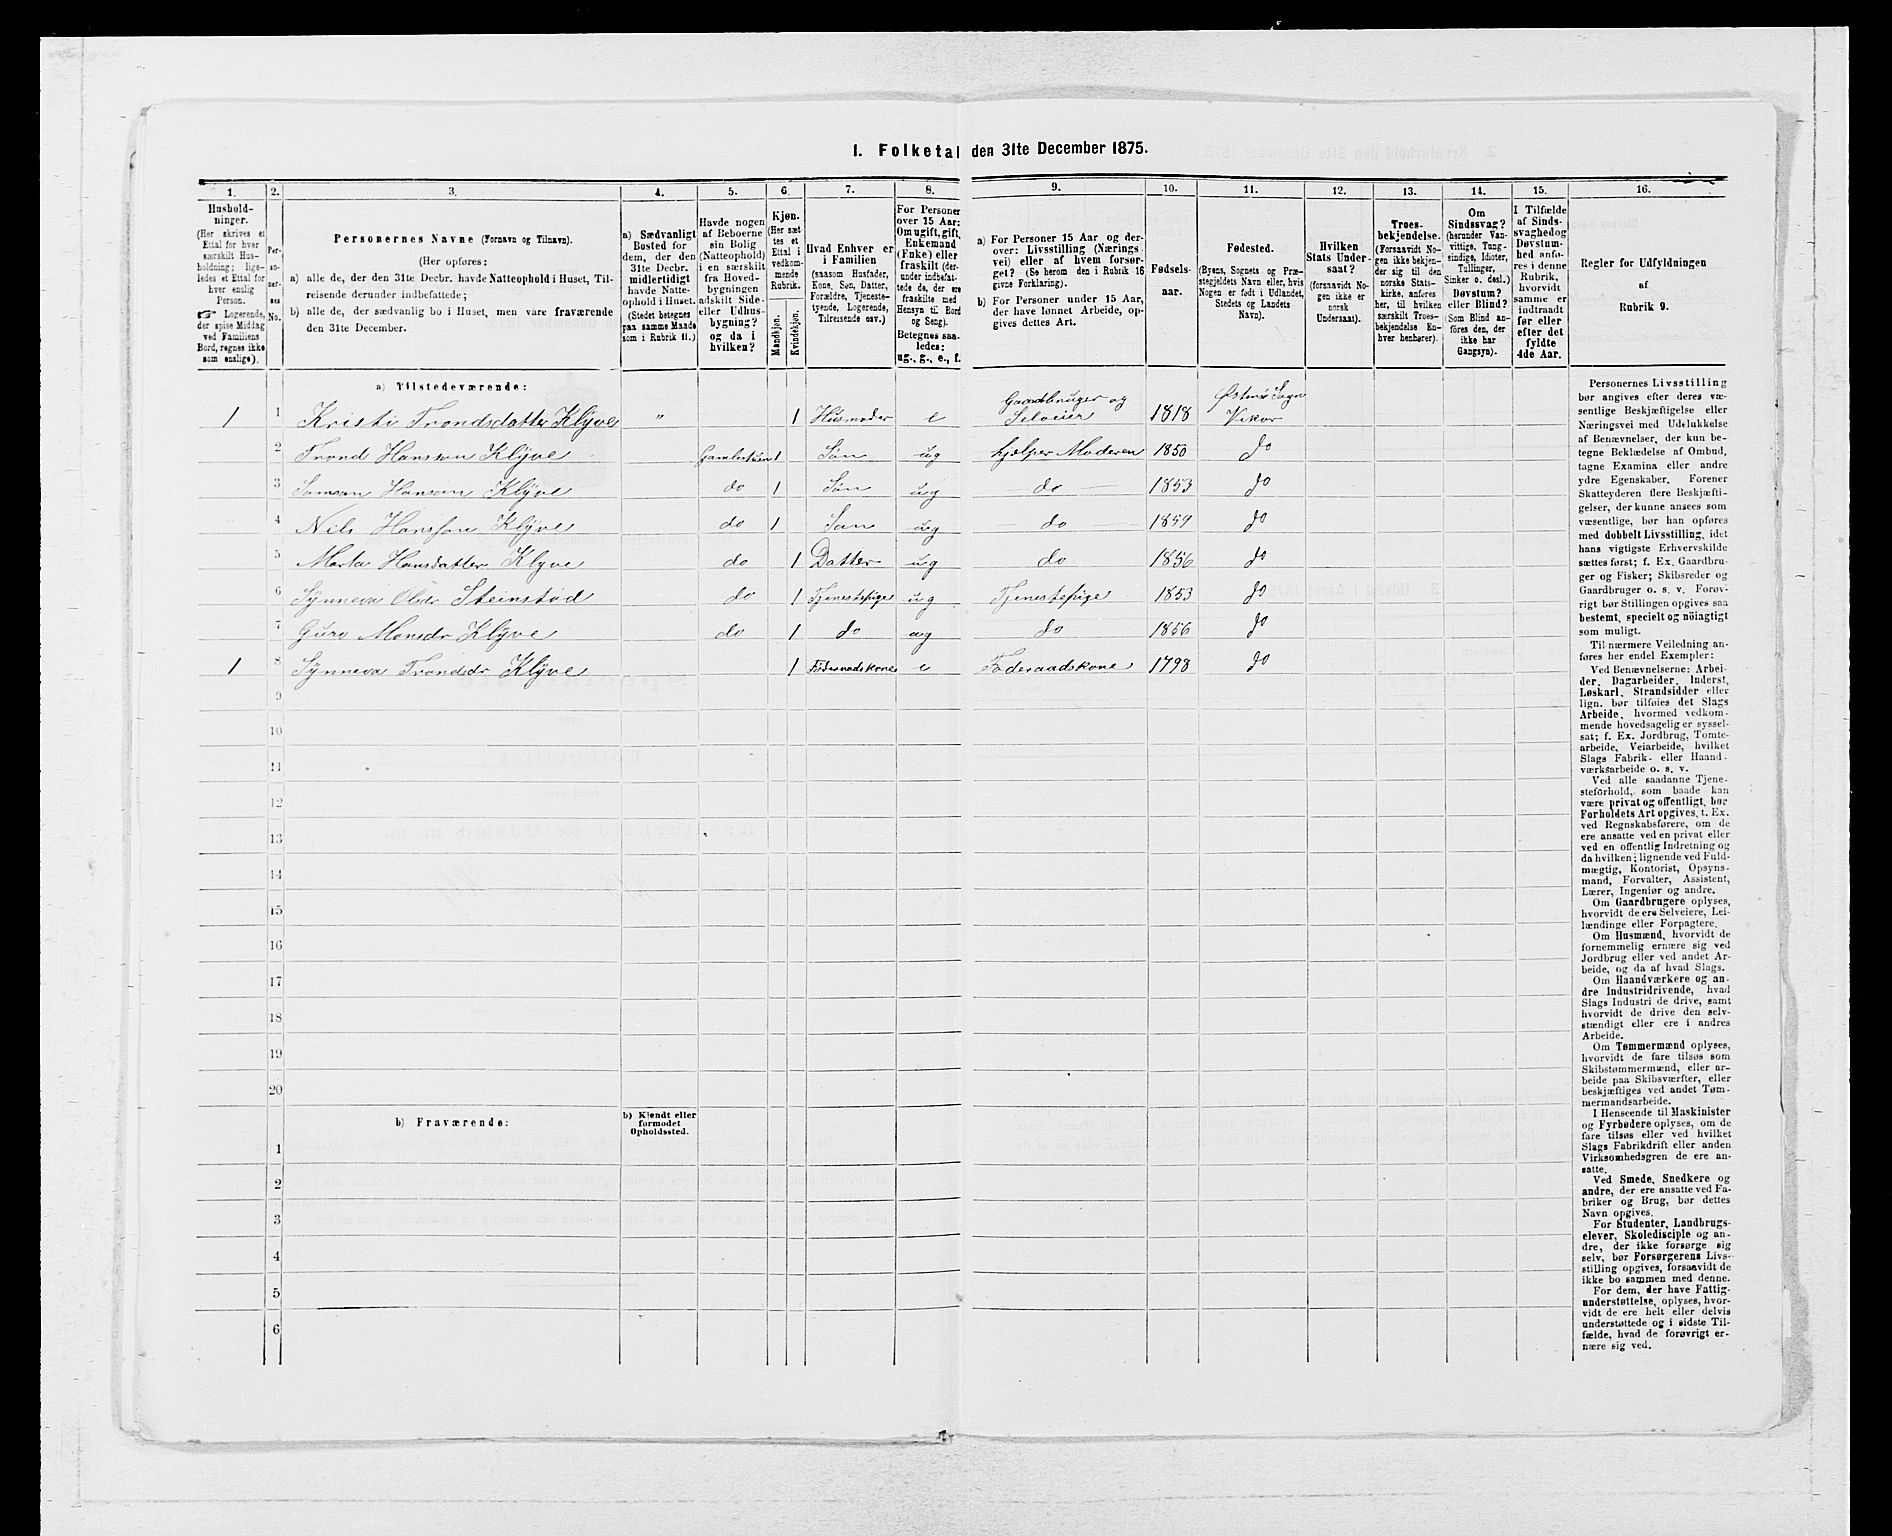 1. Folketal den 31te December 1875.
1. 2. 3. 4. 5. 6. 7. 8. 9. 10. 11. 12. 13. 14. 15. 16.
Hushold-
ninger.
(Her skrives et
Ettal for hver
særskilt Hus-
holdning; lige-
ledes et Ettal for
hver enslig
Person.
Logerende,
der spise Middag
ved Familiens
Bord, regnes ikke
som enslige).
Per-
so-
ner-
nes
No.
Personernes Navne (Fornavn og Tilnavn).
(Her opføres:
a) alle de, der den 31te Decbr. havde Natteophold i Huset, Til-
reisende derunder indbefattede;
b) alle de, der sædvanlig bo i Huset, men vare fraværende
den 31te December.
a) Sædvanligt
Bosted for
dem, der den
31te Decbr.
midlertidigt
havde Natte-
ophold i Huset.
(Stedet betegnes
paa samme Maade
som i Rubrik 11.)
Havde nogen
af Beboerne
sin Bolig
(Natteophold)
i en særskilt
fra Hoved-
bygningen
adskilt Side-
eller Udhus-
bygning?
og da i
hvilken?
Kjøn.
(Her sæt-
tes et
Ettal i
vedkom-
mende
Rubrik.
Mandkjøn.
Kvindekjøn.
Hvad Enhver er
i Familien
(saasom Husfader,
Kone, Søn, Datter,
Forældre, Tjeneste-
tyende, Logerende,
Tilreisende osv.)
For Personer
over 15 Aar:
Om ugift, gift,
Enkemand
(Enke) eller
fraskilt (der-
under indbefat-
tede de, der ere
fraskilte med
Hensyn til Bord
og Seng).
Betegnes saa-
ledes:
ug., g., e., f.
a) For Personer 15 Aar og der-
over: Livsstilling (Nærings-
vei) eller af hvem forsør-
get? (Se herom den i Rubrik 16
givne Forklaring).
b) For Personer under 15 Aar,
der have lønnet Arbeide, op-
gives dettes Art.
Fødsels-
aar.
Fødested.
(Byens, Sognets og Præ-
stegjeldets Navn eller, hvis
Nogen er født i Udlandet,
Stedets og Landets
Navn).
Hvilken
Stats Under-
saat?
(forsaavidt No-
gen ikke er
norsk
Undersaat).
Troes-
bekjendelse.
(Forsaavidt No-
gen ikke bekjen-
der sig til den
norske Stats-
kirke, anføres
her, til hvilken
særskilt Troes-
bekjendelse En-
hver henhører).
Om
Sindssvag?
(herunder Van-
vittige, Tung-
sindige, Idioter,
Tullinger,
Sinker o. desl.)
Døvstum?
eller Blind?
(Som Blind an-
føres den, der
ikke har
Gangsyn).
I Tilfælde
af Sinds-
svaghed og
Døvstum-
hed anfø-
res i denne
Rubrik,
hvorvidt
samme er
indtraadt
før eller
efter det
fyldte
4de Aar.
Regler for Udfyldningen
af
Rubrik 9.
a) Tilstedeværende:
1 1 Kristi Trondsdatter Klÿve " 1 Husmoder e Gaardbruger og Selveier 1818 Østensö Sogn Vikor
2 Trond Hansson Klÿve Gamlestuen 1 Søn ug hjælper Moderen 1850 do
3 Samson Hanson Klÿve do 1 Søn ug do 1853 do
4 Nils Hansson Klÿve do 1 Søn ug do 1859 do
5 Marta Hansdatter Klyve do 1 Datter ug do 1856 do
6 Sÿnneva Olsdr Steinstød do 1 Tjenestepige ug Tjenestepige 1853 do
7 Guro Monsdr Klÿve do 1 do ug do 1856 do
1 8 Sÿnneva Trondsdr Klÿve 1 Føderaadskone e Føderaadskone 1798 do
9
10
11
12
13
14
15
16
17
18
19
20
b) Fraværende:
b) Kjendt eller
formodet
Opholdssted.
1
2
3
4
5
6
Personernes Livsstilling
bør angives efter deres væ-
sentlige Beskjæftigelse eller
Næringsvei med Udelukkelse
af Benævnelser, der kun be-
tegne Beklædelse af Ombud,
tagne Examina eller andre
ydre Egenskaber. Forener
Skatteyderen flere Beskjæfti-
gelser, der kunne ansees som
væsentlige, bør han opføres
med dobbelt Livsstilling, idet
hans vigtigste Erhvervskilde
sættes først; f. Ex. Gaardbru-
ger og Fisker; Skibsreder og
Gaardbruger o. s. v. Forøv-
rigt bør Stillingen opgives saa
bestemt, specielt og nöiagtigt
som muligt.
Til nærmere Veiledning an-
føres her endel Exempler:
Ved Benævnelserne: Arbei-
der, Dagarbeider, Inderst,
Løskarl, Strandsidder eller
lign. bør tilføies det Slags
Arbeide, hvormed vedkom-
mende hovedsagelig er syssel-
sat; f. Ex. Jordbrug, Tomte-
arbeide, Veiarbeide, hvilket
Slags Fabrik- eller Haand-
værksarbeide o. s. v.
Ved alle saadanne Tjene-
steforhold, som baade kan
være privat og offentligt, bør
Forholdets Art opgives, t. Ex.
ved Regnskabsførere, om de
ere ansatte ved en privat eller
ved en offentlig Indretning og
da hvilken; lignende ved Fuld-
mægtig, Kontorist, Opsyns-
mand, Forvalter, Assistent,
Lærer, Ingeniør og andre.
Om Gaardbrugere oplyses,
hvorvidt de ere Selveiere, Lei-
lændinge eller Forpagtere.
Om Husmænd, hvorvidt de
fornemmelig ernære sig ved
Jordbrug eller ved andet Ar-
beide, og da af hvad Slags.
Om Haandværkere og an-
dre Industridrivende, hvad
Slags Industri de drive, samt
hvorvidt de drive den selv-
stændigt eller ere i andres
Arbeide.
Om Tømmermænd oplyses,
hvorvidt de fare tilsøs som
Skibstømmermænd, eller ar-
beide paa Skibsværfter, eller
beskjæftiges ved andet Tøm-
mermandsarbeide.
I Henseende til Maskinister
og Fyrbødere oplyses, om de
fare tilsøs eller ved hvilket
Slags Fabrikdrift eller anden
Virksomhedsgren de ere an-
satte.
Ved Smede, Snedkere og
andre, der ere ansatte ved Fa-
briker og Brug, bør dettes
Navn opgives.
For Studenter, Landbrugs-
elever, Skoledisciple og an-
dre, der ikke forsørge sig
selv, bør Forsørgerens Livs-
stilling opgives, forsaavidt de
ikke bo sammen med denne.
For dem, der have Fattig-
understøttelse, oplyses, hvor-
vidt de ere helt eller delvis
understøttede og i sidste Til-
fælde, hvad de forøvrigt er-
nære sig ved.